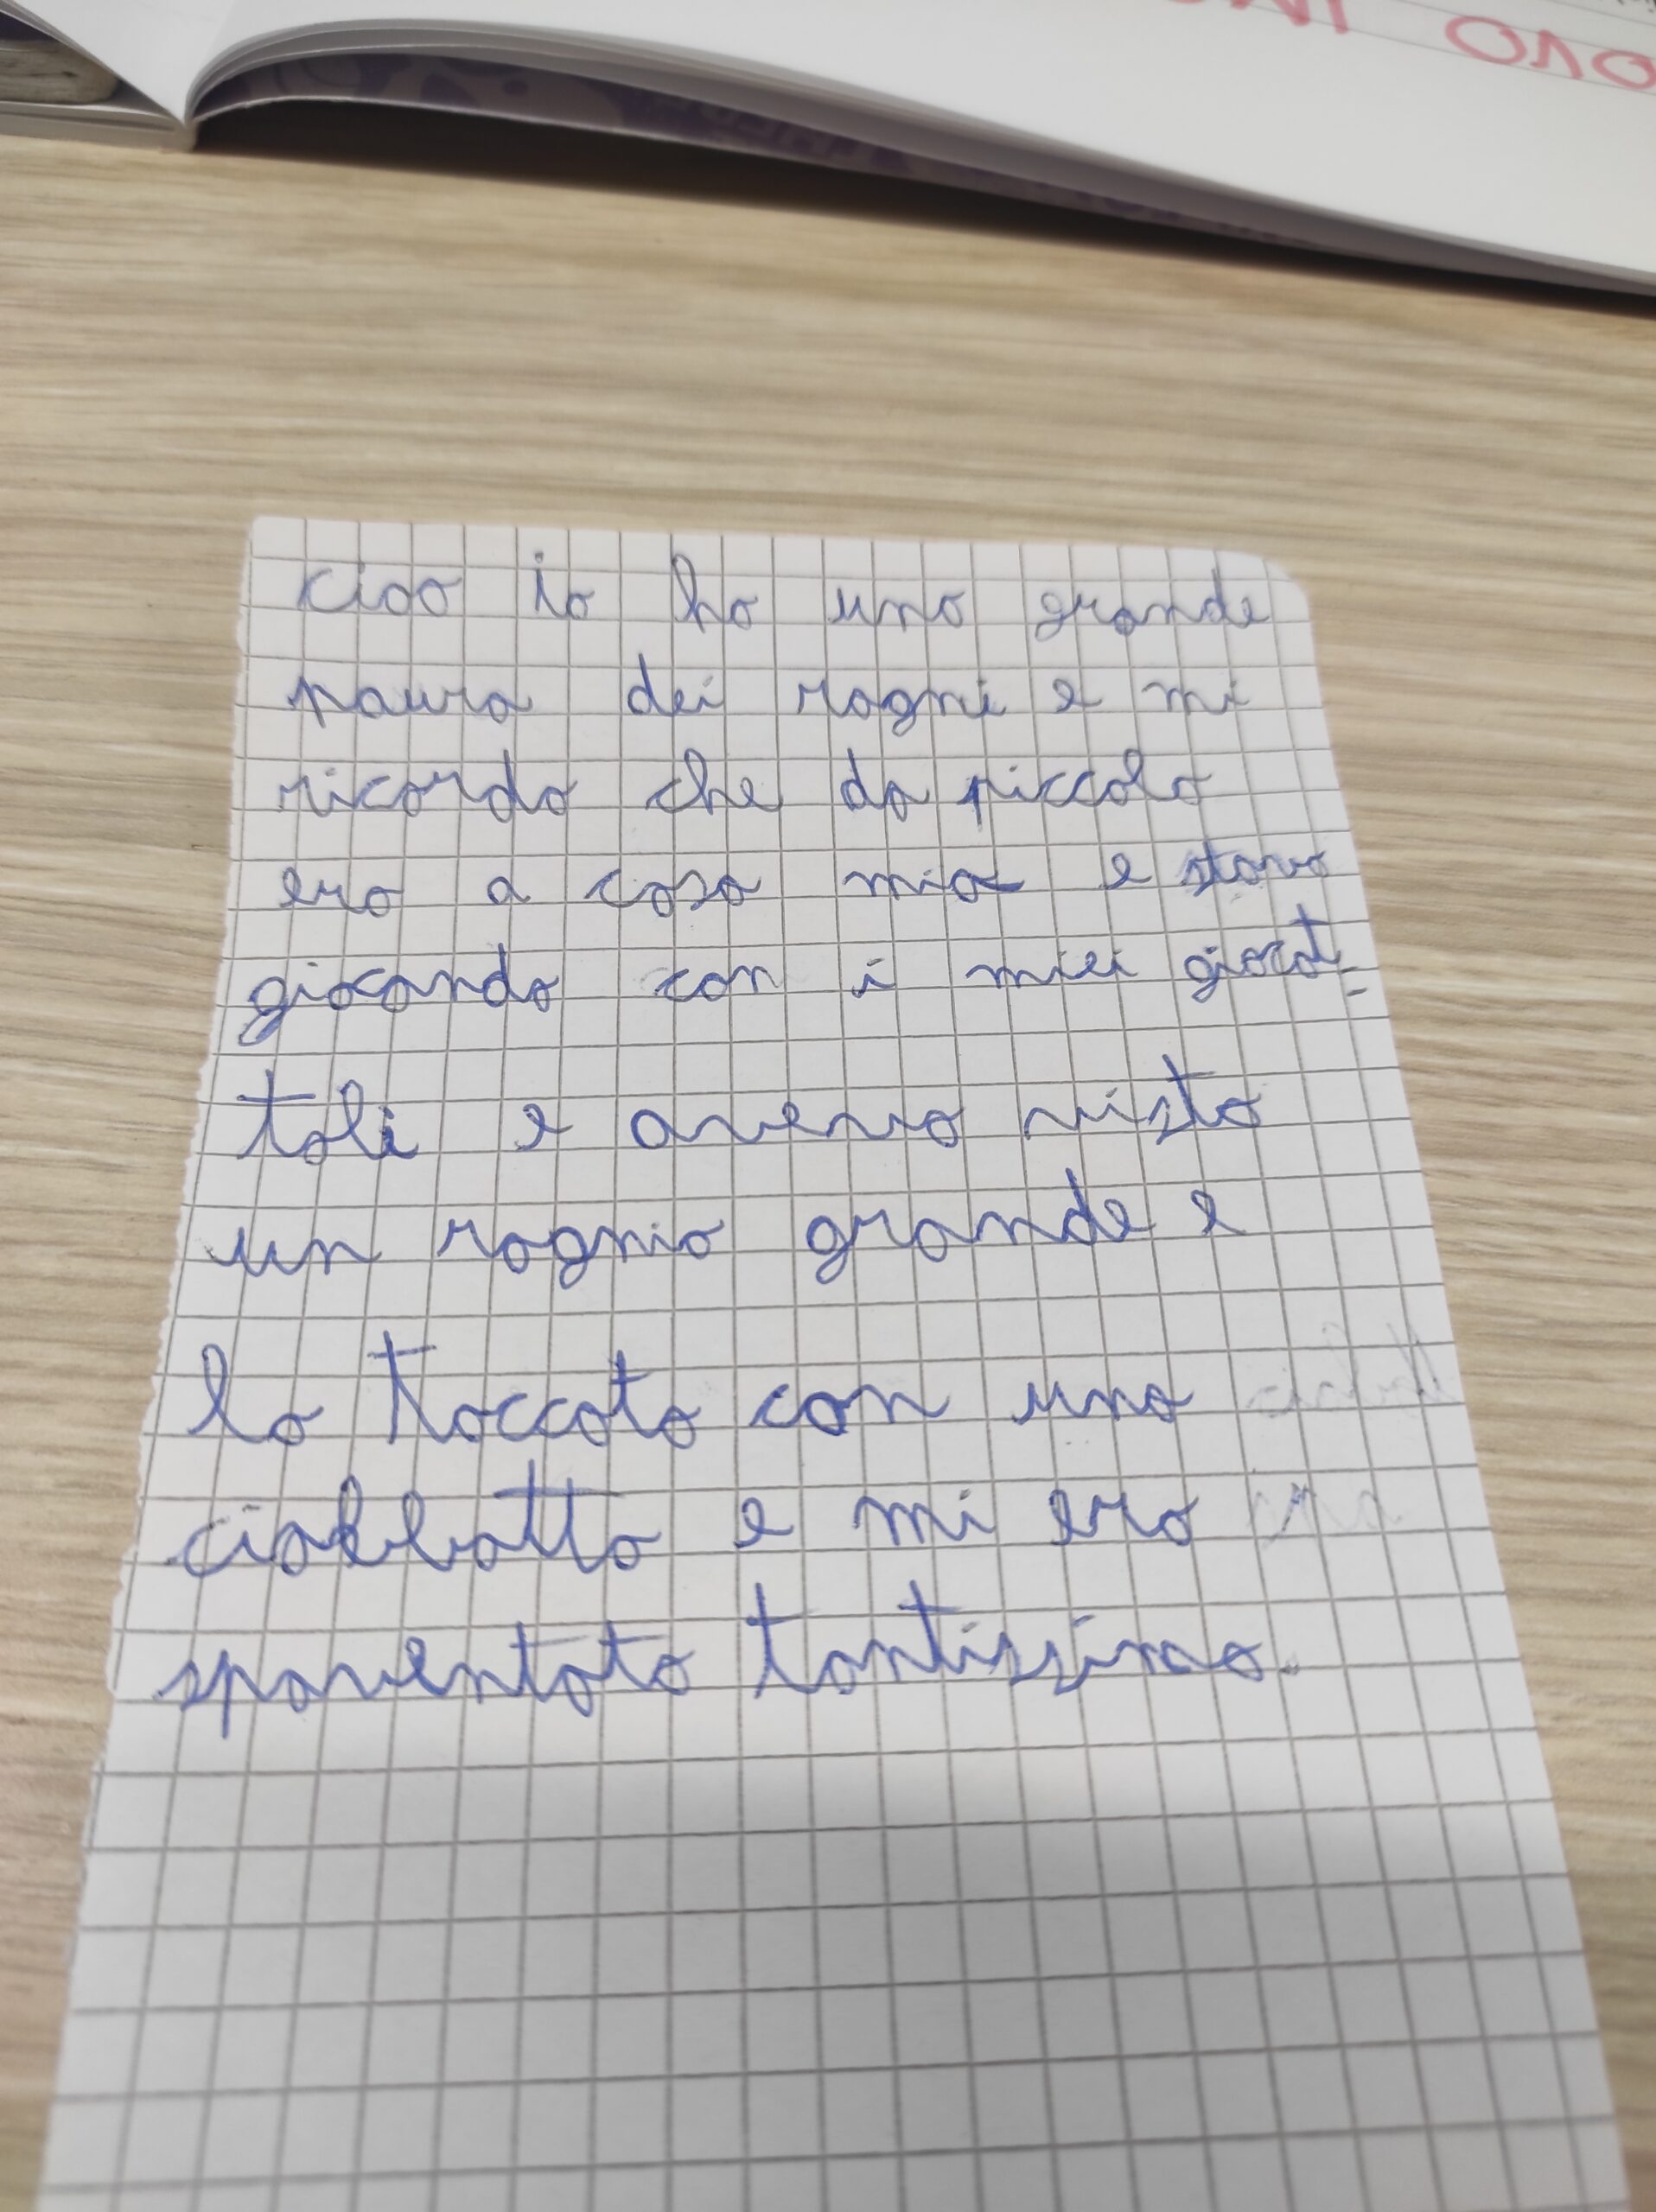 OVO
ciao io ho una grande
paura dei ragni e mi
ricordo che da piccolo
ero a casa mia e stavo
giocando con i miei giocat-
toli e avevo visto
un ragnio grande e
lo toccato con una
ciabbatta e mi ero
spaventato tantissimo.